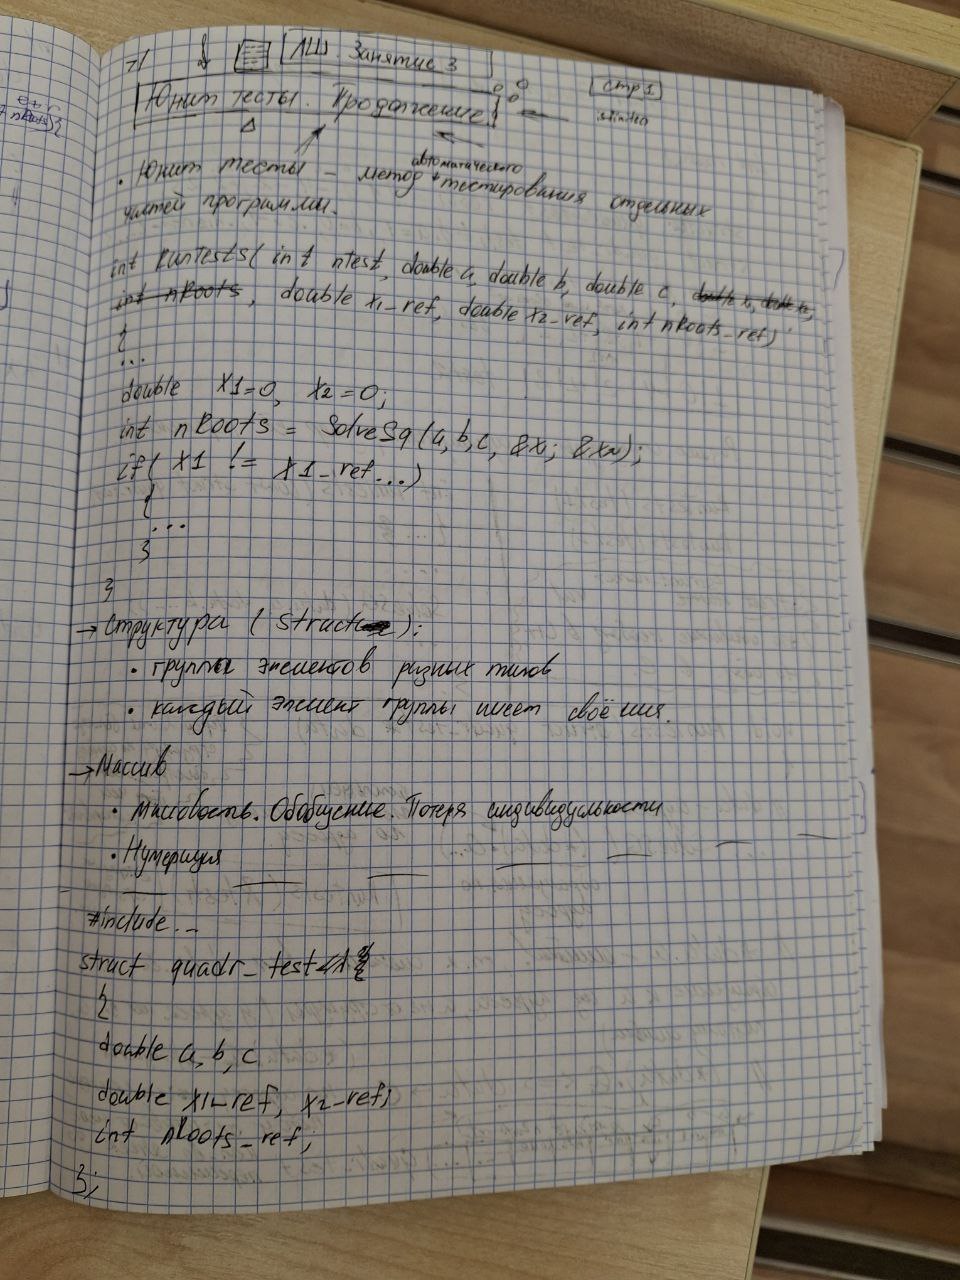 ЛШ. Занятие 3
стр 1
Юнит тесты. Продолжение.
• Юнит тесты – метод автоматического тестирования отдельных
частей программы.
int RunTests( int ntest, double a, double b, double c, double x1, double x2,
int nRoots, double x1_ref, double x2_ref, int nRoots_ref)
{
...
double x1=0, x2=0;
int nRoots = SolveSq(a,b,c, &x1; &x2);
if( x1 != x1_ref...)
{
...
}
}
→ Структура ( struct ):
• группы элементов разных типов
• каждый элемент группы имеет своё имя.
→ Массив
• Массовость. Обобщение. Потеря индивидуальности
• Нумерация
#include...
struct quadr_test
{
double a, b, c
double x1_ref, x2_ref;
int nRoots_ref;
};